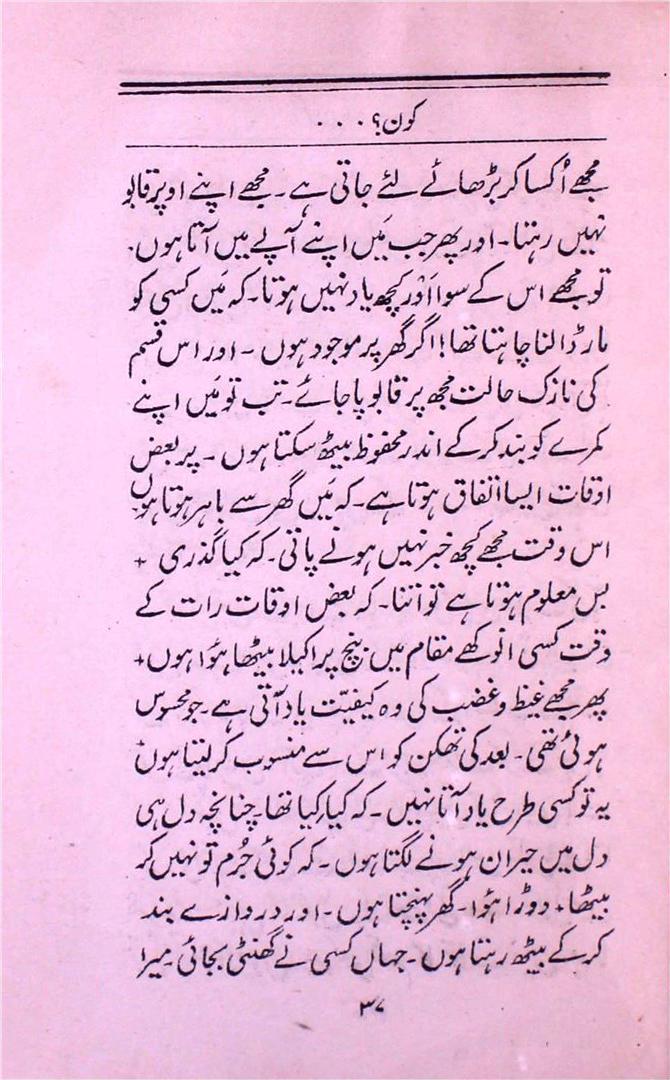 کون؟ . . .
مجھے اُکسا کر بڑھائے لئے جاتی ہے۔ مجھے اپنے اوپر قابو
نہیں رہتا۔ اور پھر جب مَیں اپنے آپے میں آتا ہوں۔
تو مجھے اس کے سوا اَور کچھ یاد نہیں ہوتا۔ کہ مَیں کسی کو
مار ڈالنا چاہتا تھا! اگر گھر پر موجود ہوں ۔ اور اس قسم
کی نازک حالت مجھ پر قابو پا جائے۔ تب تو مَیں اپنے
کمرے کو بند کر کے اندر محفوظ بیٹھ سکتا ہوں ۔ پر بعض
اوقات ایسا اتفاق ہوتا ہے۔ کہ مَیں گھر سے باہر ہوتا ہوں۔
اس وقت مجھے کچھ خبر نہیں ہونے پاتی۔ کہ کیا گذری +
بس معلوم ہوتا ہے تو اتنا۔ کہ بعض اوقات رات کے
وقت کسی انوکھے مقام میں بنچ پر اکیلا بیٹھا ہؤا ہوں+
پھر مجھے غیظ و غضب کی وہ کیفیّت یاد آتی ہے۔ جو محسوس
ہوئی تھی۔ بعد کی تھکن کو اس سے منسوب کر لیتا ہوں+
یہ تو کسی طرح یاد آتا نہیں۔ کہ کیا کِیا تھا۔ چنانچہ دل ہی
دل میں حیران ہونے لگتا ہوں۔ کہ کوئی جُرم تو نہیں کر
بیٹھا+ دوڑا ہؤا۔ گھر پہنچتا ہوں۔ اور دروازے بند
کر کے بیٹھ رہتا ہوں۔ جہاں کسی نے گھنٹی بجائی۔ میرا
۳۷